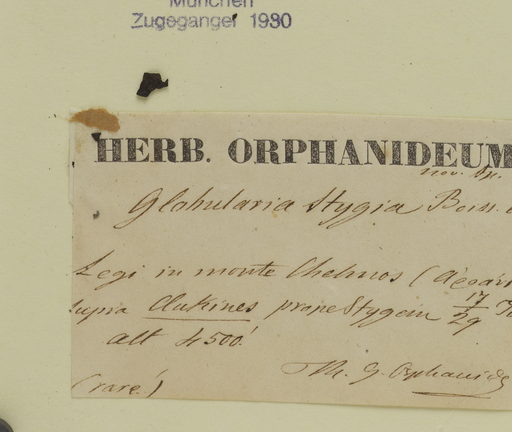 München
Zugegangen 1930
HERB. ORPHANIDEUM
nov. sp.
Globularia Stygia Boiss.
Legi in monte Chelmos (
supra Clukines prope Stygem 17/29
alt 4500'
Th. G. Orphanides
(rare!)